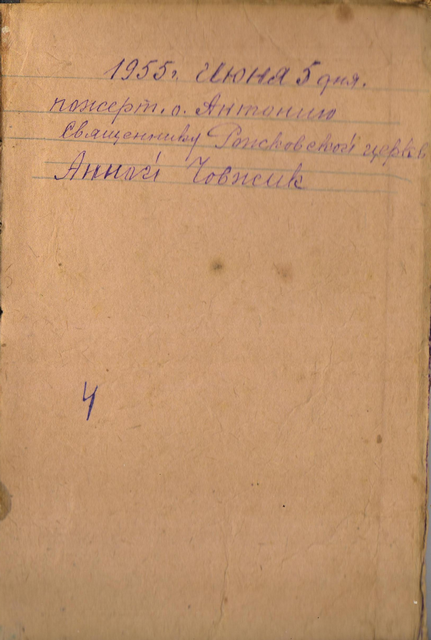 1955 г. Июня 5 дня.
пожерт. о. Антонию
Священнику Рожковской церкви
Анной Човжик
4